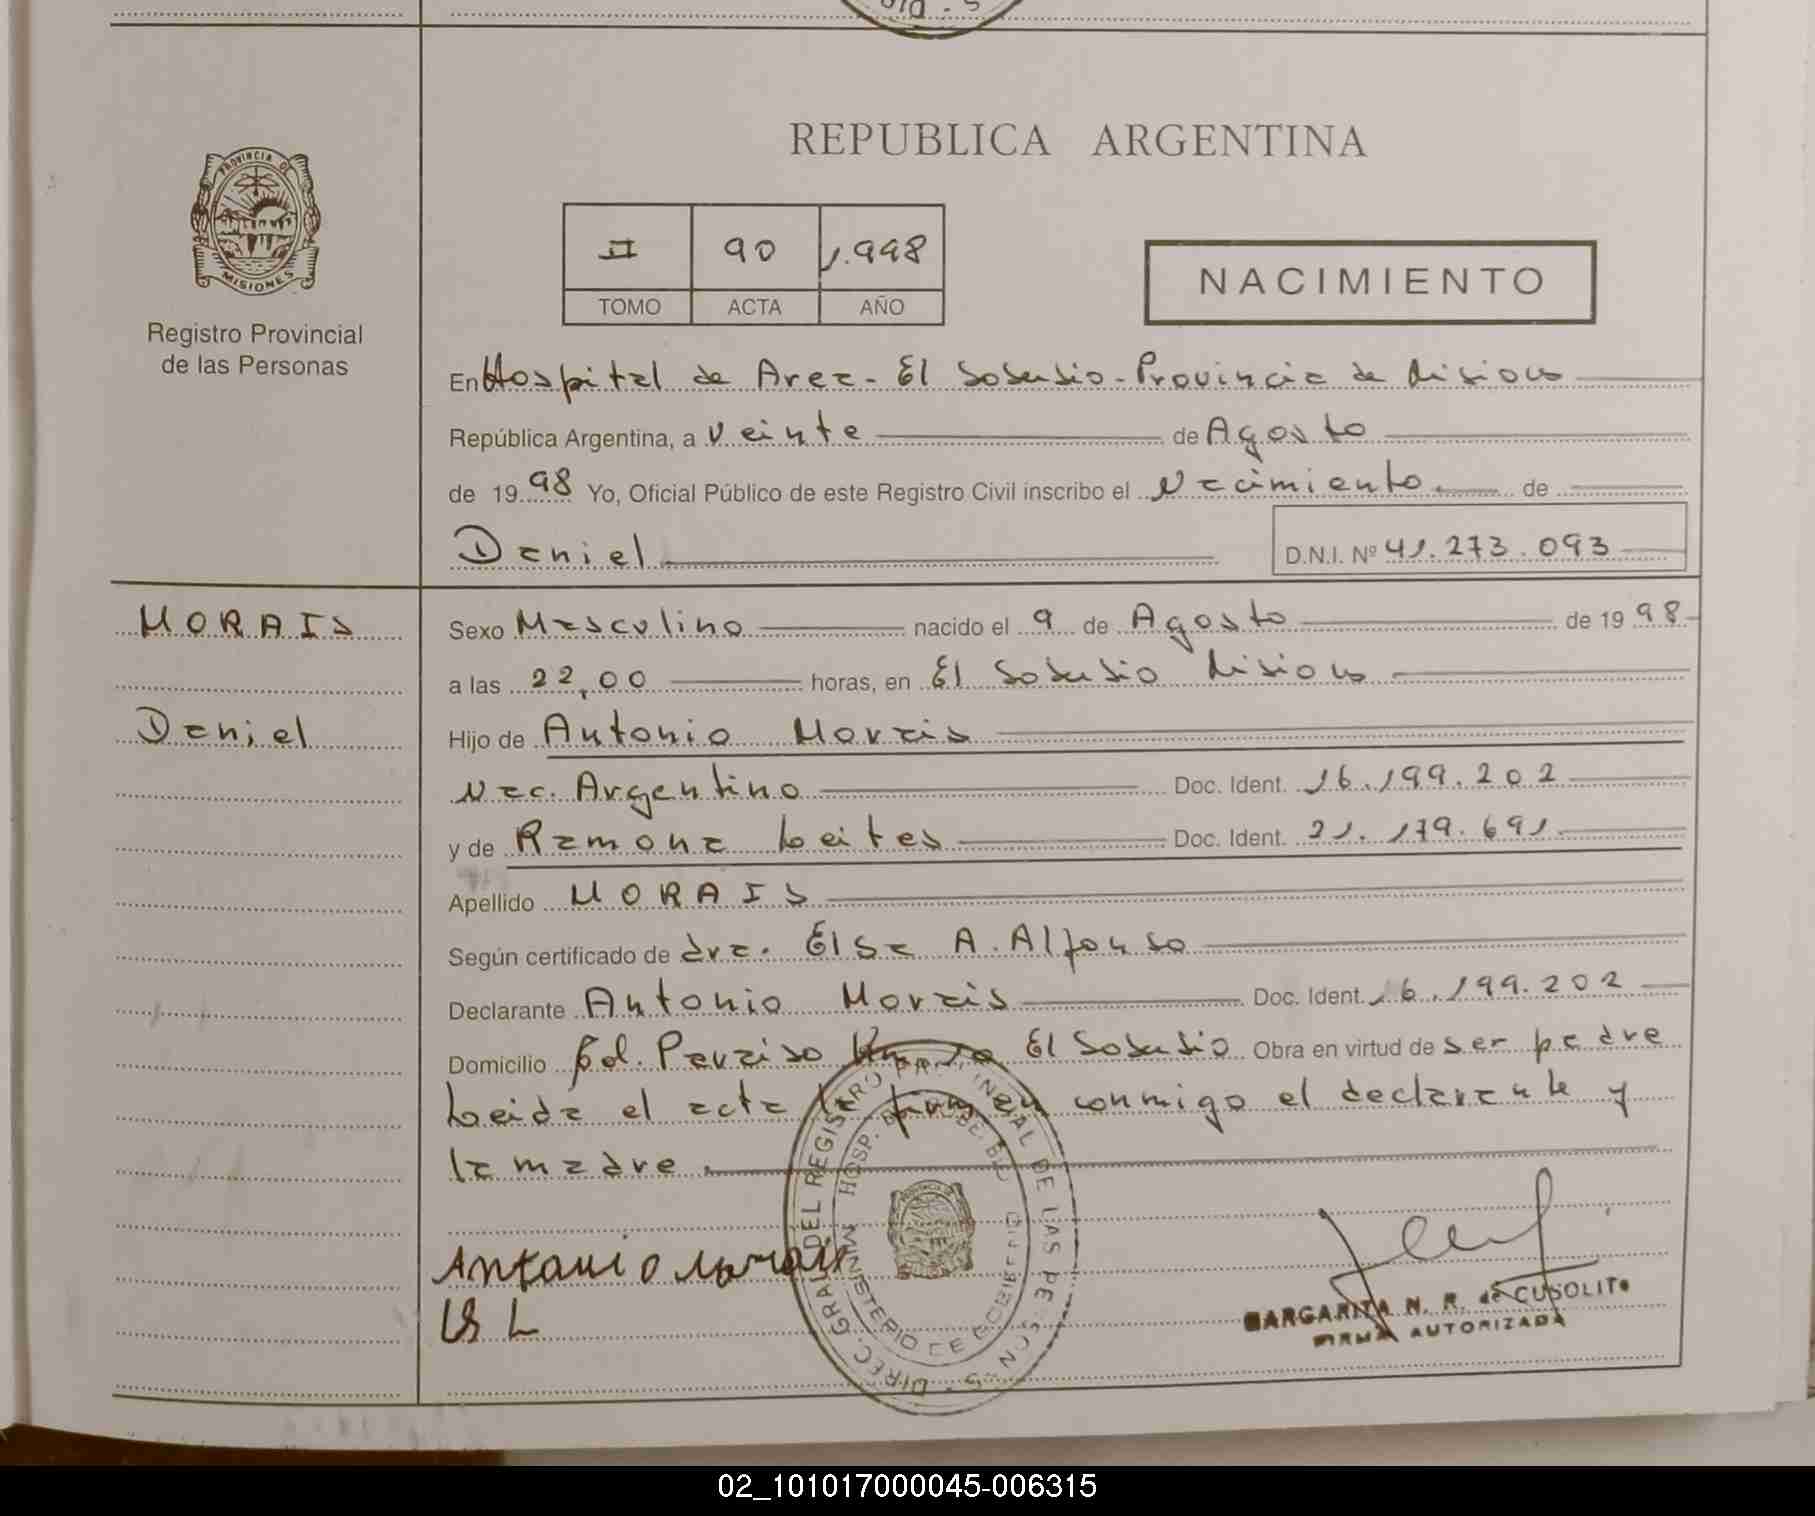 REPUBLICA ARGENTINA
PROVINCIA DE
MISIONES
Registro Provincial
de las Personas
II 90 1.998
TOMO ACTA AÑO
NACIMIENTO
En Hospital de Area - El Soberbio - Provincia de Misiones
República Argentina, a Veinte de Agosto
de 19 98 Yo, Oficial Público de este Registro Civil inscribo el Nacimiento de
Daniel D.N.I. Nº 41.273.093
MORAIS
Daniel
Sexo Masculino nacido el 9 de Agosto de 19 98
a las 22,00 horas, en El Soberbio Misiones
Hijo de Antonio Morais
Nac. Argentino Doc. Ident. 16.199.202
y de Ramona Leites Doc. Ident. 21.179.691
Apellido MORAIS
Según certificado de dra. Elsa A. Alfonso
Declarante Antonio Morais Doc. Ident. 16.199.202
Domicilio Col. Paraiso Km El Soberbio Obra en virtud de ser padre
Leida el acta la firman conmigo el declarante y
la madre
Antonio Morais
L
DIREC. GRAL DEL REGISTRO PROVINCIAL DE LAS PERSONAS
HOSP.
MINISTERIO DE GOBIERNO
MARGARITA N. R. de CUSOLITO
FIRMA AUTORIZADA
02_101017000045-006315